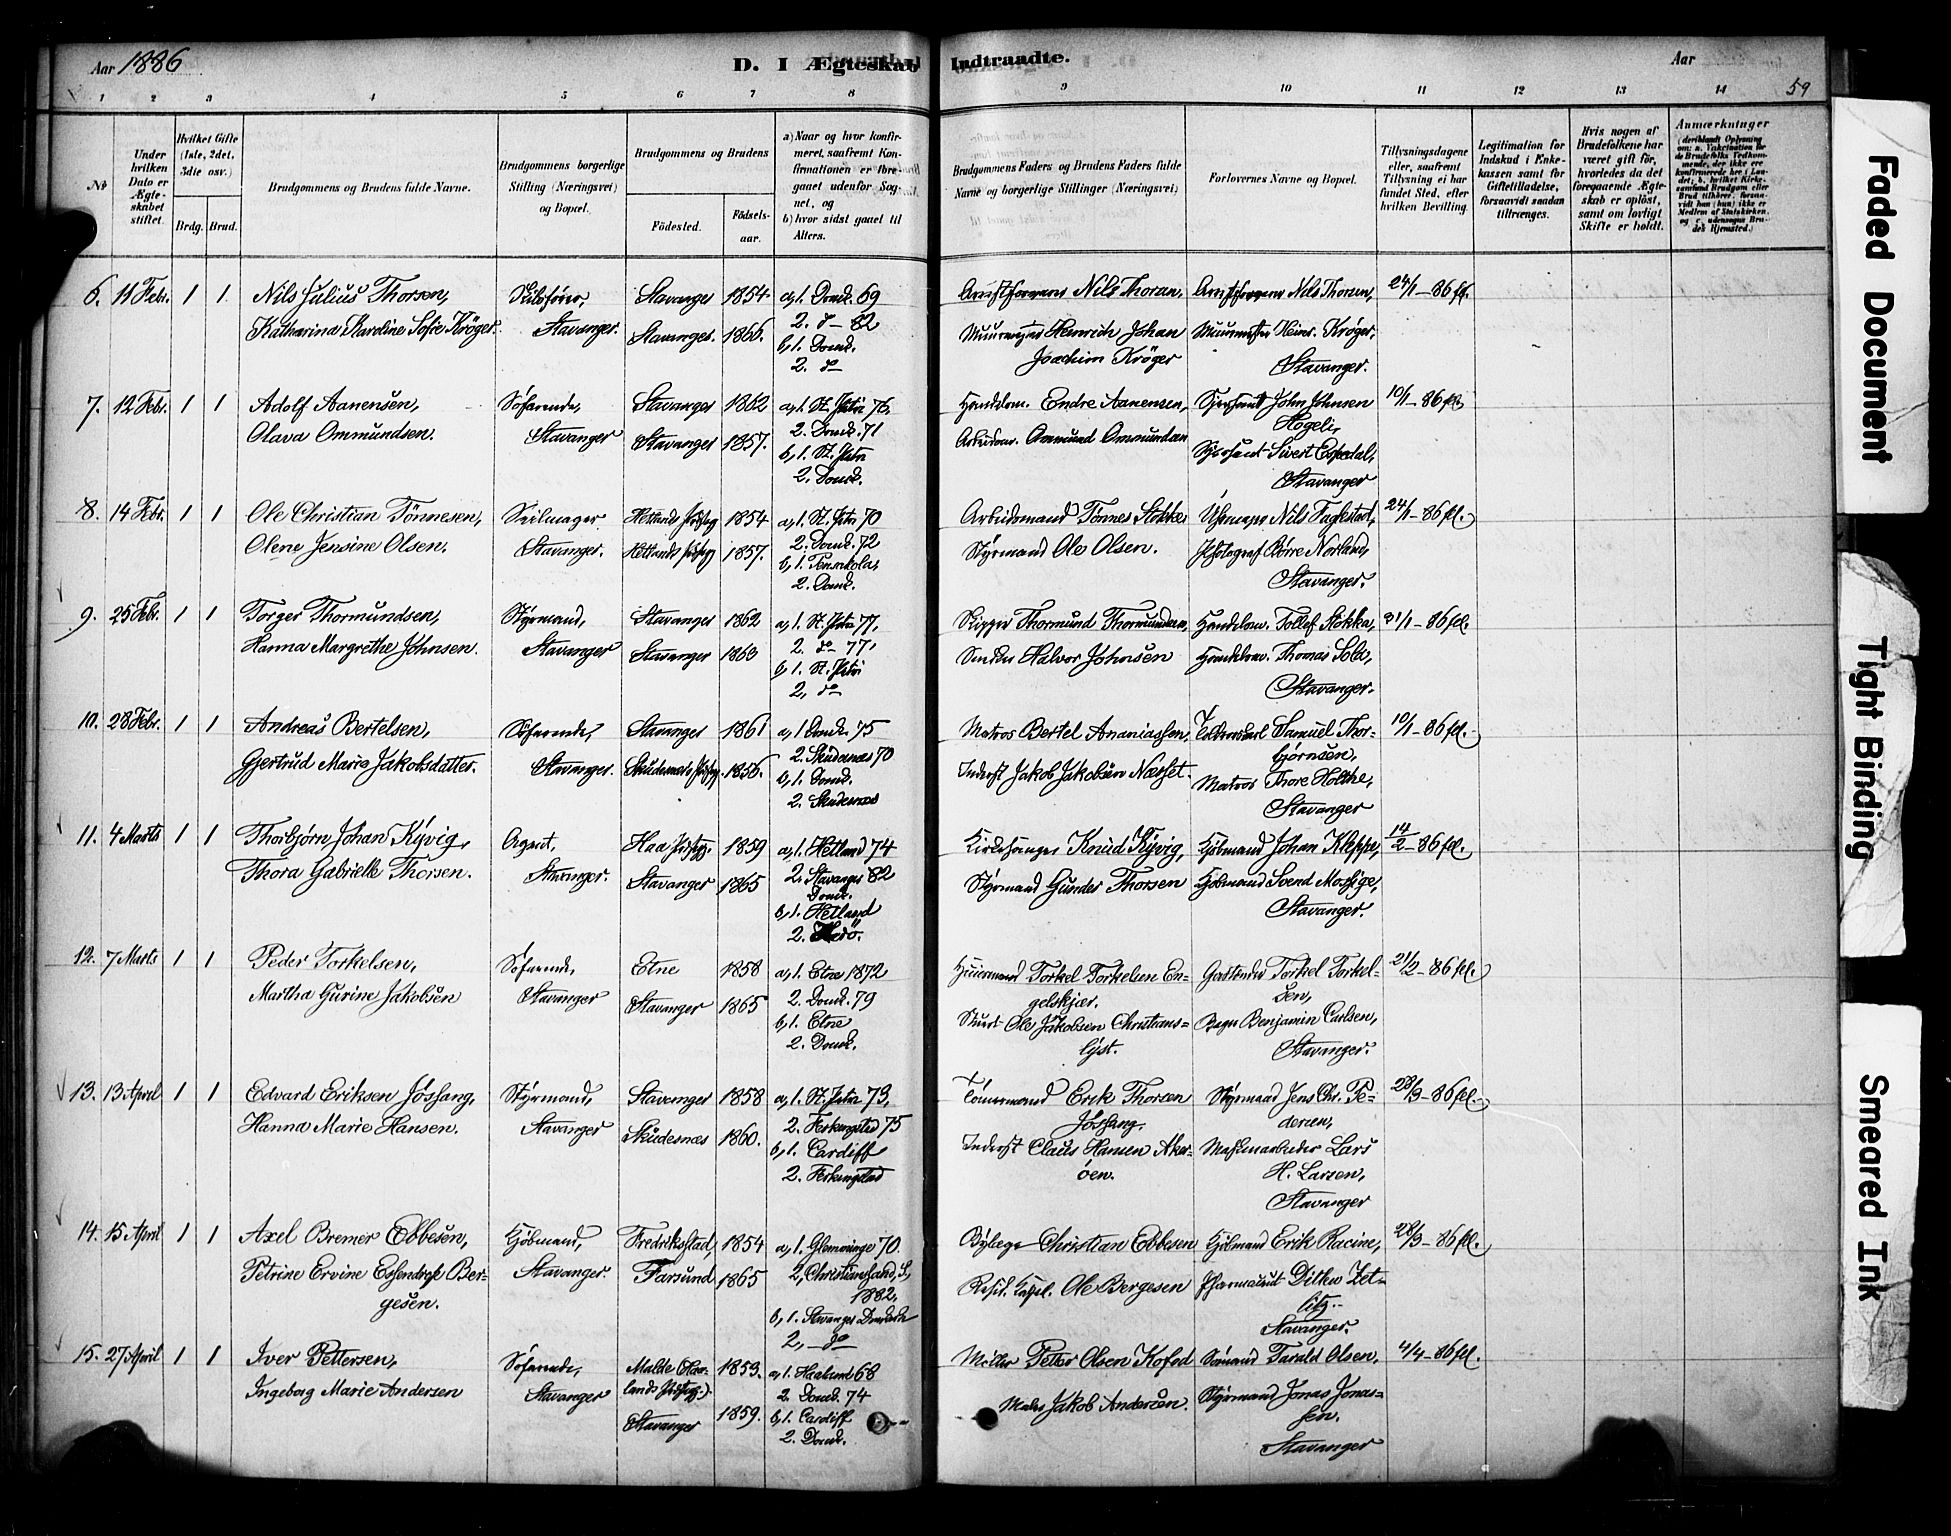 Aar 1886
D. I Ægteskab Indtraadte.
Aar
59
1 2 3 4 5 6 7 8 9 10 11 12 13 14
No
Under hvilken Dato er Ægteskabet stiftet.
Hvilket Gifte (1ste, 2det, 3die osv.)
Brdg. Brud.
Brudgommens og Brudens fulde Navne.
Brudgommens borgerlige Stilling (Næringsvei) og Bopæl.
Brudgommens og Brudens
Födested.
Födselsaar.
a) Naar og hvor konfirmeret, saafremt Konfirmationen er foregaaet udenfor Sognet, og
b) hvor sidst gaaet til Alters.
Brudgommens Faders og Brudens Faders fulde Navne og borgerlige Stillinger (Næringsvei)
Forlovernes Navne og Bopæl.
Tillysningsdagene eller, saafremt Tillysning ei har fundet Sted, efter hvilken Bevilling.
Legitimation for Indskud i Enkekassen samt for Giftetilladelse, forsaavidt saadan tiltrænges.
Hvis nogen af Brudefolkene har været gift för, hvorledes da det foregaaende Ægteskab er oplöst, samt om lovligt Skifte er holdt.
Anmærkninger
6. 11 Febr. 1 1 Nils Julius Thorsen, Stavanger 1854 a, 1. Domk. 69 Nils Thorsen, Nils Thorsen, 24/1-86 fl.
Katharina Karoline Sofie Kröger. Stavanger. Stavanger. 1866. 2. do 82 Henrich Johan Muurmester Heinr. Kröger,
b, 1. Domk. Joachim Kröger Stavanger.
2. do
7. 12 Febr. 1 1 Adolf Aanensen, Söfarende, Stavanger 1862 a, 1. St. Petri 76. Handelsm. Endre Aanensen, John Johnsen 10/1-86 fl.
Olava Ommundsen. Stavanger Stavanger 1857. 2. Domk. 71 Arbeidsm. Ommund Ommundsen Hogeli,
b, 1. St. Petri Sivert Espedal,
2. Domk. Stavanger
8. 14 Febr. 1 1 Ole Christian Tönnesen, Seilmager Hetlands 1854 a, 1. St. Petri 70 Arbeidsmand Tönnes Stokke Nils Faglestad, 24/1-86 fl.
Olene Jensine Olsen. Stavanger. Hetlands 1857. 2. Domk. 72 Styrmand Ole Olsen. Fotograf Börre Norland,
b, 1. Pensakola, Stavanger.
2. Domk.
9. 25 Febr. 1 1 Torger Thormundsen, Styrmand, Stavanger 1862 a, 1. St. Petri 77, Skipper Thormund Thormundsen, Handelsm. Tollef Stokka, 31/1-86 fl.
Hanna Margrethe Johnsen. Stavanger Stavanger 1860 2. do 77, Halvor Johnsen Handelsm. Thomas Sola,
b, 1. St. Petri Stavanger.
2, do
10. 28 Febr. 1 1 Andreas Bertelsen, Söfarende, Stavanger 1861 a, 1 Domk. 75 Matros Bertel Ananiassen, Samuel Thor- 10/1-86 fl.
Gjertrud Maria Jakobsdatter. Stavanger. Skudesnes 1856. 2. Skudesnes 70 Inderst Jakob Jakobsen Næsset. björnsen,
b, 1. Domk. Matros Thore Holthe,
2. Skudesnes Stavanger
11. 4 Marts 1 1 Thorbjörn Johan Kyvig, Agent, Haa 1859 a, 1. Hetland 74 Kirkesanger Knud Kyvig, Kjöbmand Johan Kleppe, 14/2-86 fl.
Thora Gabrielle Thorsen. Stavanger. Stavanger 1865 2. Stavanger 82 Styrmand Gunder Thorsen Kjöbmand Svend Mossige,
Domk. Stavanger.
b, 1. Hetland
2.
12. 7 Marts 1 1 Peder Torkelsen, Söfarende, Etne 1858 a, 1. Etne 1872 Huusmand Torkel Torkelsen En- Torkel Torkel- 21/2-86 fl.
Martha Gurine Jakobsen Stavanger Stavanger 1865 2. Domk. 79 gelskjær. sen,
b, 1. Etne Ole Jakobsen Christians- Bager Benjamin Carlsen,
2. Domk. lyst. Stavanger.
13. 13 April 1 1 Edvard Eriksen Jössang, Styrmand, Stavanger 1858 a, 1. St. Petri 73, Tömermand Erik Thorsen Styrmand Jens Chr. Pe- 28/3-86 fl.
Hanna Marie Hansen. Stavanger Skudesnæs 1860. 2. Ferkingstad 75 Jössang. dersen,
b, 1. Cardiff Inderst Claus Hansen Aker- Lars
2. Ferkingstad öen. H. Larsen,
Stavanger
14. 15 April 1 1 Axel Bremer Ebbesen, Kjöbmand, Fredriksstad, 1854 a, 1. Glemminge 70. Christian Ebbesen Kjöbmand Erik Racine, 28/3-86 fl.
Petrine Ervine Essendrop Ber- Stavanger. Farsund 1865 2, Christiansand, S, Resid. Kapel. Ole Bergesen Farmaceut Ditlev Zet-
gesen. 1882, litz.
b, 1. Stavanger Domkirke Stavanger.
2, do
15. 27 April 1 1 Iver Pettersen, Söfarende, Malde (Haa- 1853. a, 1. Haaland 68 Möller Petter Olsen Kofod Sömand Tarald Olsen, 4/4-86 fl.
Ingeborg Marie Andersen Stavanger lands 2. Domk. 74 Maler Jakob Andersen. Styrmand Jonas Jonas-
Stavanger 1859. b, 1. Cardiff sen.
2. Domk. Stavanger
Faded Document
Tight Binding
Smeared Ink